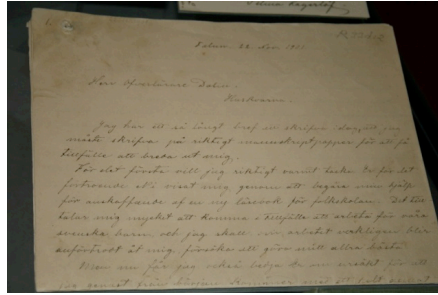 Falun 22 Nov. 1901
Herr Öfverlärare Dalin.
Huskvarna.
Jag har ett så långt bref att skrifva idag, att jag
måste skrifva på riktigt manuskriptpapper för att få
tillfälle att breda ut mig.
För det första vill jag riktigt varmt tacka Er för det
förtroende Ni visat mig genom att begära min hjälp
för anskaffande af en ny läsebok för folkskolan. Det till-
talar mig mycket att komma i tillfälle att arbeta för våra
svenska barn, och jag skall, om arbetet verkligen blir
anförtrodt åt mig, försöka att göra mitt allra bästa.
Men nu får jag också bedja Er om ursäkt för att
jag genast från början kommer med ett helt